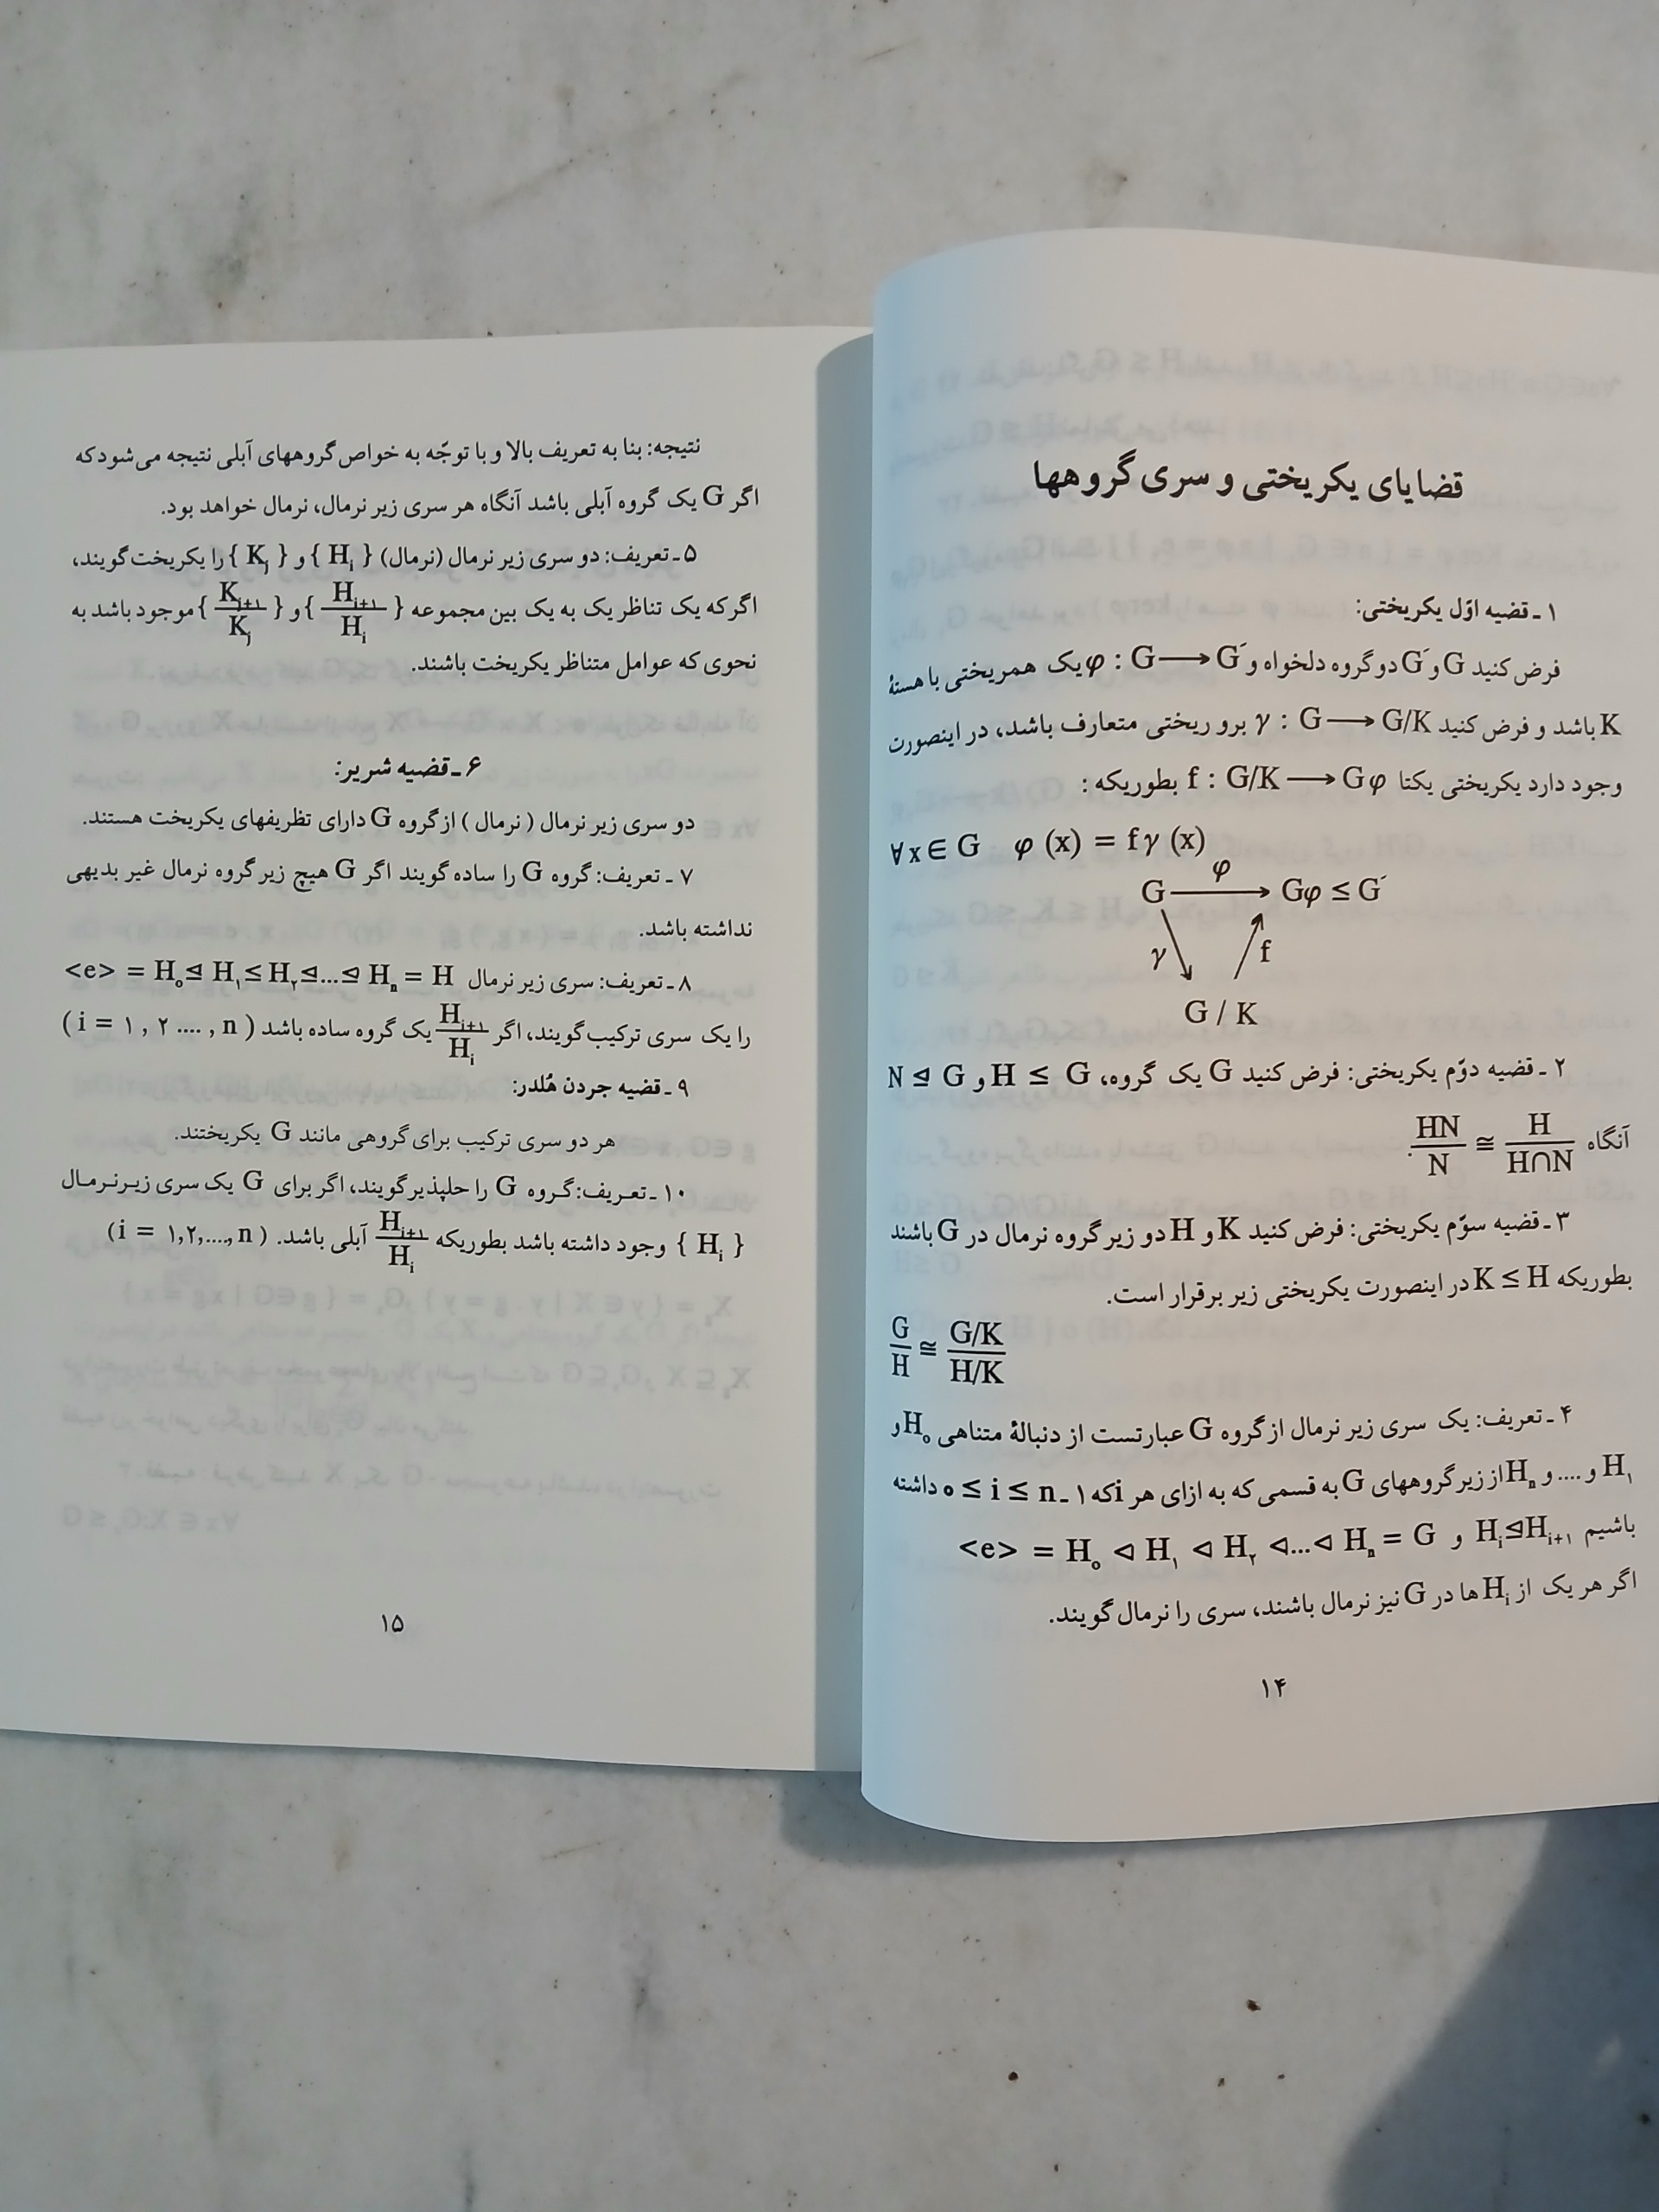 قضایای یکریختی و سری گروهها
۱ ـ قضیه اوّل یکریختی:
فرض کنید G و G´ دو گروه دلخواه و φ : G ⟶ G´ یک همریختی با هستهٔ
K باشد و فرض کنید γ : G ⟶ G/K برو ریختی متعارف باشد، در اینصورت
وجود دارد یکریختی یکتا f : G/K ⟶ Gφ بطوریکه :
∀x ∈ G φ (x) = fγ (x)
φ
G ⟶ Gφ ≤ G´
γ f
G / K
۲ ـ قضیه دوّم یکریختی: فرض کنید G یک گروه، H ≤ G و N ⊴ G
آنگاه HN/N ≅ H/H∩N.
۳ ـ قضیه سوّم یکریختی: فرض کنید K و H دو زیر گروه نرمال در G باشند
بطوریکه K ≤ H در اینصورت یکریختی زیر برقرار است.
G/H ≅ (G/K)/(H/K)
۴ ـ تعریف: یک سری زیر نرمال از گروه G عبارتست از دنبالهٔ متناهی H₀ و
H₁ و .... و Hₙ از زیر گروههای G به قسمی که به ازای هر i که ۰ ≤ i ≤ n ـ ۱ داشته
باشیم Hᵢ ⊴ Hᵢ₊₁ و <e> = H₀ ⊲ H₁ ⊲ H₂ ⊲...⊲ Hₙ = G
اگر هر یک از Hᵢ ها در G نیز نرمال باشند، سری را نرمال گویند.
۱۴
نتیجه: بنا به تعریف بالا و با توجّه به خواص گروههای آبلی نتیجه می‌شود که
اگر G یک گروه آبلی باشد آنگاه هر سری زیر نرمال، نرمال خواهد بود.
۵ ـ تعریف: دو سری زیر نرمال (نرمال) { Hᵢ } و { Kⱼ } را یکریخت گویند،
اگر که یک تناظر یک به یک بین مجموعه { Hᵢ₊₁/Hᵢ } و { Kⱼ₊₁/Kⱼ } موجود باشد به
نحوی که عوامل متناظر یکریخت باشند.
۶ ـ قضیه شریر:
دو سری زیر نرمال ( نرمال ) از گروه G دارای تظریفهای یکریخت هستند.
۷ ـ تعریف: گروه G را ساده گویند اگر G هیچ زیر گروه نرمال غیر بدیهی
نداشته باشد.
۸ ـ تعریف: سری زیر نرمال <e> = H₀ ⊴ H₁ ≤ H₂ ⊴...⊴ Hₙ = H
را یک سری ترکیب گویند، اگر Hᵢ₊₁/Hᵢ یک گروه ساده باشد ( i = ۱ , ۲ .... , n )
۹ ـ قضیه جردن هُلدر:
هر دو سری ترکیب برای گروهی مانند G یکریختند.
۱۰ ـ تعریف: گروه G را حلپذیر گویند، اگر برای G یک سری زیرنرمال
{ Hᵢ } وجود داشته باشد بطوریکه Hᵢ₊₁/Hᵢ آبلی باشد. ( i = ۱,۲,...., n )
۱۵